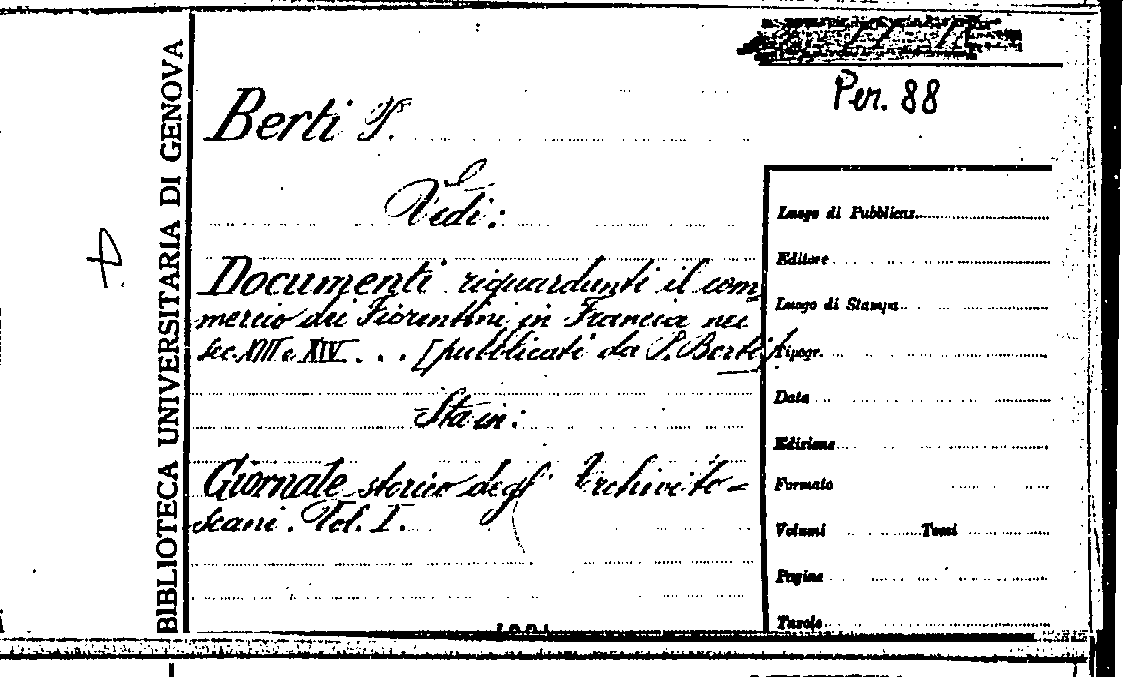 BIBLIOTECA UNIVERSITARIA DI GENOVA
Per. 88
Berti P.
Vedi:
Documenti riguardanti il com=
mercio dei Fiorentini in Francia nei
sec. XIII e XIV . . . [pubblicati da P. Berti].
Sta in:
Giornale storico degli Archivi to=
scani. Vol. I.
Luogo di Pubblicaz.
Editore
Luogo di Stampa
Tipogr.
Data
Edizione
Formato
Volumi Tomi
Pagine
Tavole